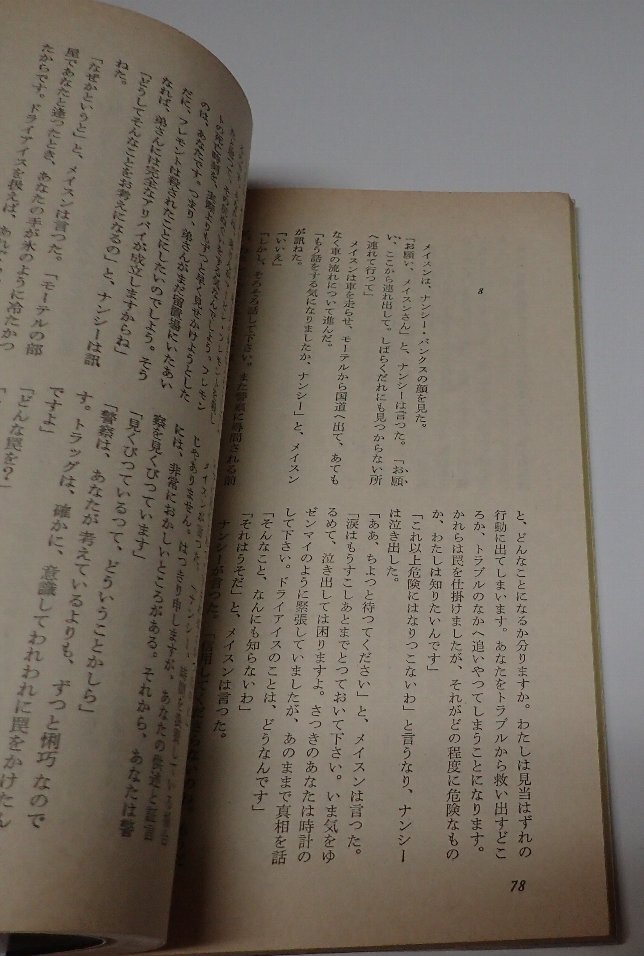 8
メイスンは、ナンシー・バンクスの顔を見た。
「お願い、メイスンさん」と、ナンシーは言つた。「お願
い、ここから連れ出して。しばらくだれにも見つからない所
へ連れて行つて」
メイスンは車を走らせ、モーテルから国道へ出て、あても
なく車の流れについて進んだ。
「もう話をする気になりましたか、ナンシー」と、メイスン
が訊ねた。
「いいえ」
「しかし、そのそろ話して下さい。また警察に尋問される前
と、どんなことになるか分りますか。わたしは見当はずれの
行動に出てしまいます。あなたをトラブルから救い出すどこ
ろか、トラブルのなかへ追いやつてしまうことになります。
かれらは罠を仕掛けましたが、それがどの程度に危険なもの
か、わたしは知りたいんです」
「これ以上危険にはなりつこないわ」と言うなり、ナンシー
は泣き出した。
「ああ、ちよつと待つてください」と、メイスンは言つた。
「涙はもうすこしあとまでとつておいて下さい。いま気をゆ
るめて、泣き出しては困りますよ。さつきのあなたは時計の
ゼンマイのように緊張していましたが、あのままで真相を話
して下さい。ドライアイスのことは、どうなんです」
「そんなこと、なんにも知らないわ」
「それはうそだ」と、メイスンは言つた。
ナンシーが言つた。
78
のは、あなたです。つまり、弟さんがまだ留置場にいたあい
だに、フレモントは殺されたことにしたいのでしよう。そう
なれば、弟さんには完全なアリバイが成立しますからね」
「どうしてそんなことをお考えになるの」と、ナンシーは訊
ねた。
「なぜかというと」と、メイスンは言つた。「モーテルの部
屋であなたと逢つたとき、あなたの手が氷のように冷たかつ
たからです。ドライアイスを扱えば、
じやありません。はつきり申しますが、あなたの供述と証言
には、非常におかしいところがある。それから、あなたは警
察を見くびつています」
「見くびつているつて、どういうことかしら」
「警察は、あなたが考えているよりも、ずつと悧巧なので
す。トラッグは、確かに、意識してわれわれに罠をかけたん
ですよ」
「どんな罠を？」